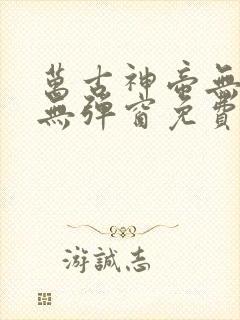 萬古神帝無
無彈窗免費
游誠志